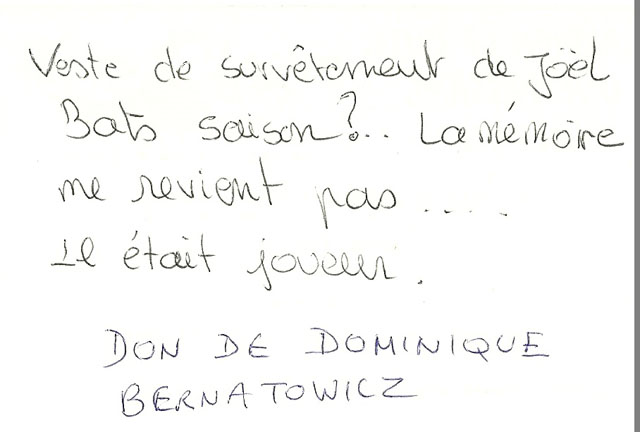 Veste de survêtement de Joël
Bats saison?.. La mémoire
me revient pas .....
Il était joueur.
DON DE DOMINIQUE
BERNATOWICZ